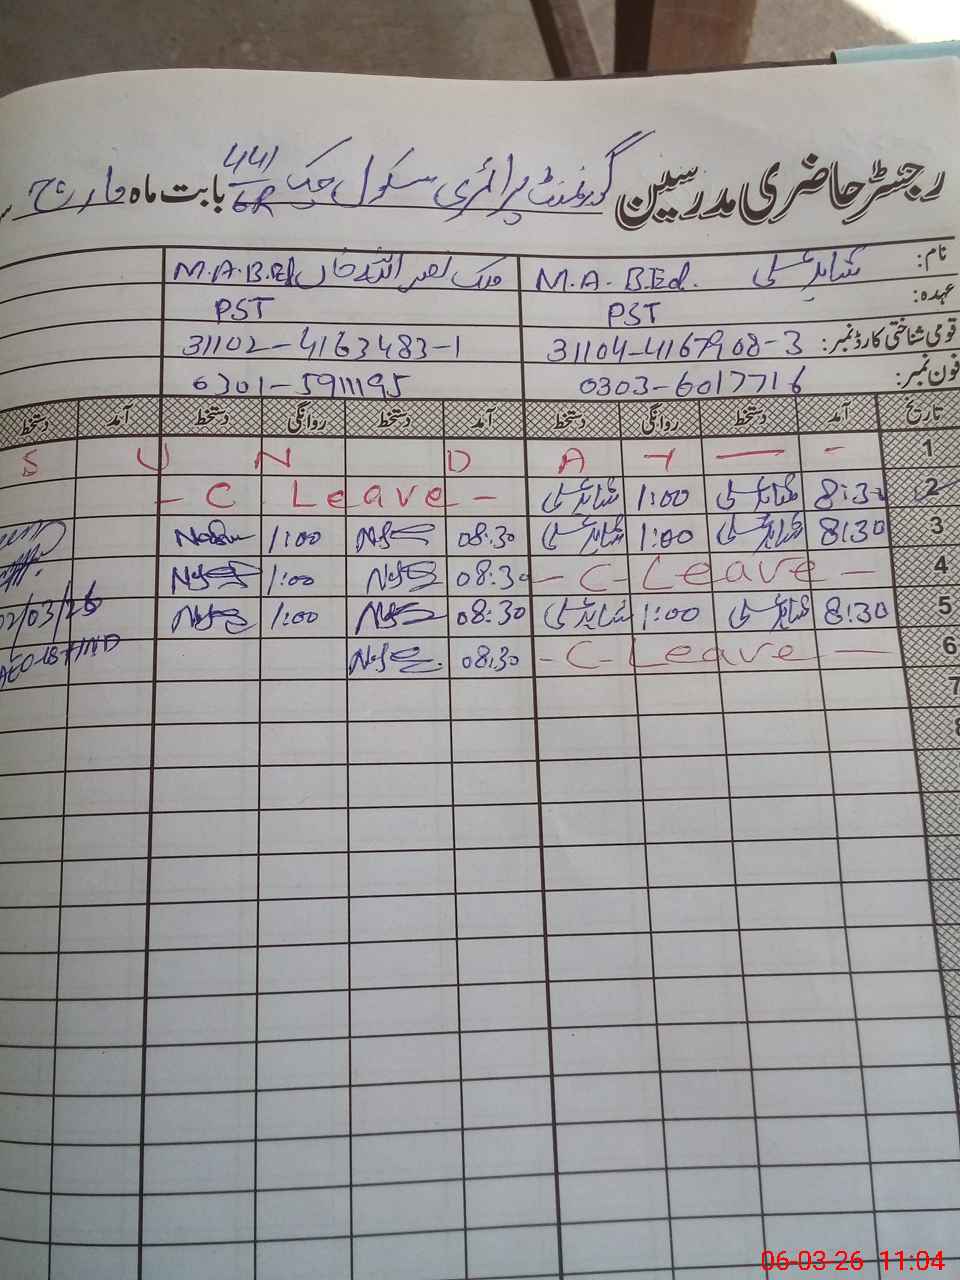 رجسٹر حاضری مدرسین گورنمنٹ پرائمری سکول چک 441/6R بابت ماہ مارچ
نام: شاہد علی M.A. B.Ed. ملک نصر اللہ خاں M.A.B.Ed
عہدہ: PST PST
قومی شناختی کارڈ نمبر: 31104-4167908-3 31102-4163483-1
فون نمبر: 0303-6017716 0301-5911195
تاریخ آمد دستخط روانگی دستخط آمد دستخط روانگی دستخط آمد دستخط
1 S U N D A Y
2 8:30 شاہد علی 1:00 شاہد علی - C Leave -
3 8:30 شاہد علی 1:00 شاہد علی 08:30 1:00
4 - C - Leave - 08:30 1:00
5 8:30 شاہد علی 1:00 شاہد علی 08:30 1:00 02/03/26
6 - C - Leave - 08:30
7
8
06-03-26 11:04